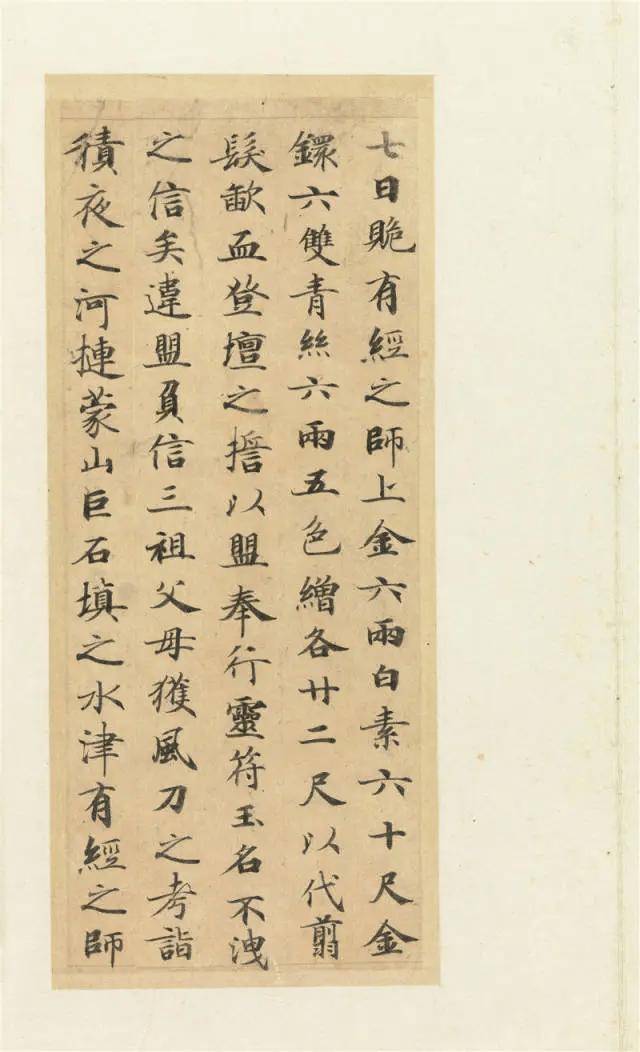 七日䞈有經之師上金六兩白素六十尺金
鐶六雙青絲六兩五色繒各廿二尺以代翦
髮歃血登壇之誓以盟奉行靈符玉名不洩
之信矣違盟負信三祖父母獲風刀之考詣
積夜之河摙蒙山巨石填之水津有經之師